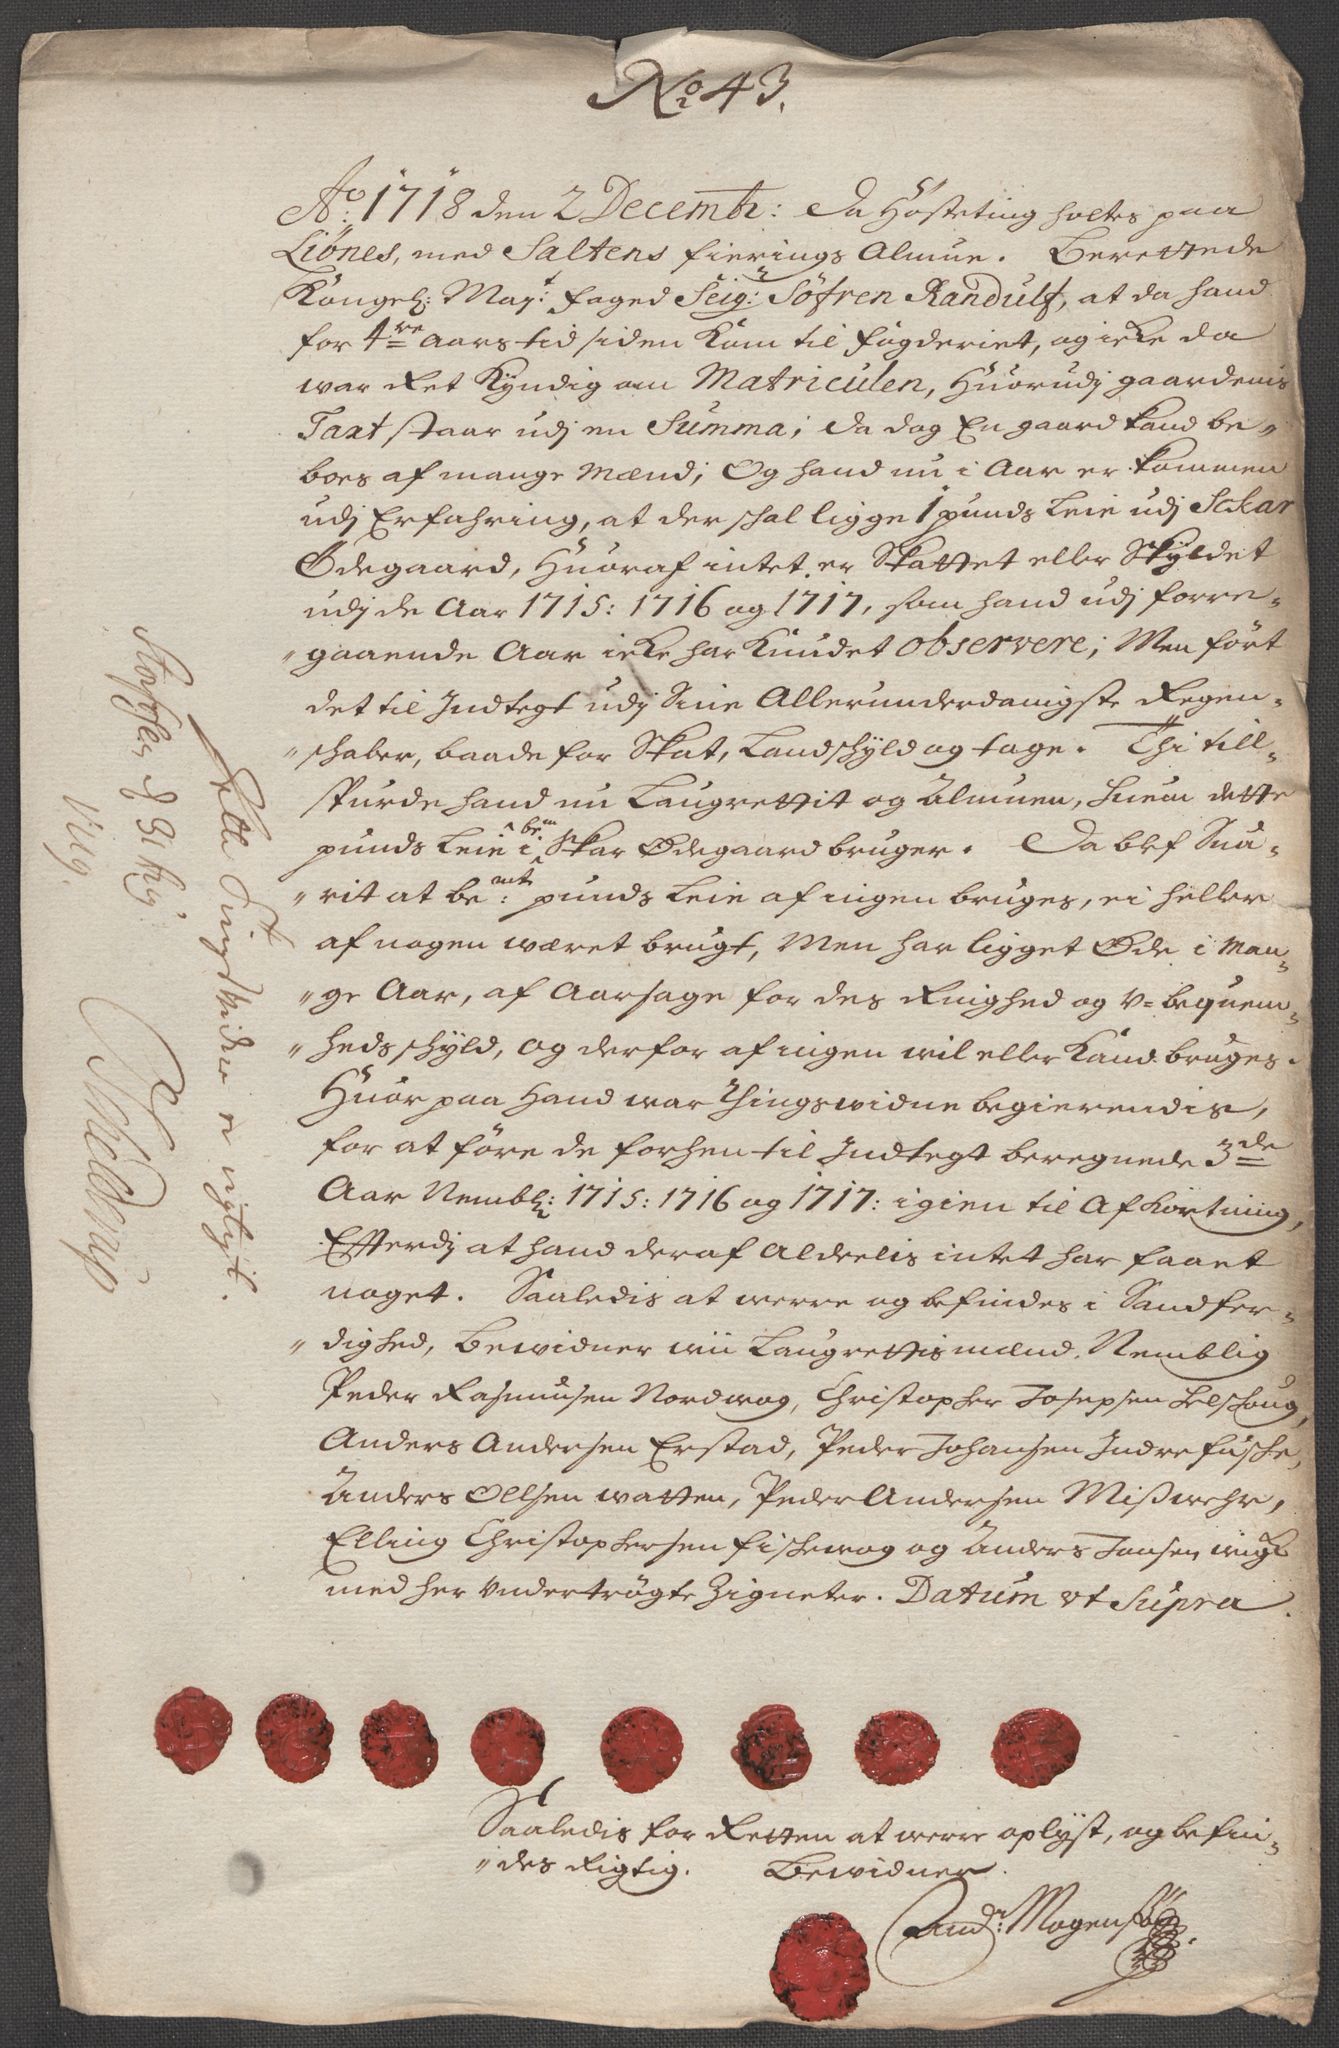 No 43.
Ao: 1718 den 2 Decembr: da Høsteting holtes paa
Liønes, med Saltens fierings Almue. Berettede
Kongel: Mayt: faaged Seigr: Søfren Randulf, at da hand
for 4re Aars tid siden kom til fogderiet, og icke da
war ret kyndig om Matriculen, Huorudj gaardenis
Taxt staar udj en Summa; da dog En gaard kand be-
boes af mange Mænd; Og hand nu i Aar er kommen
udj Erfahring, at der schal ligge 1 punds Leie udj Skar
Ødegaard, Huoraf intet er Skattet eller Skyldet
udj de Aar 1715: 1716 og 1717, som hand udj forre-
gaaende Aar icke har kundet observere; Men ført
det til Indtegt udj Sine Allerunderdanigste Regen-
schaber, baade for Skat, Landschyld og tage. Thi till-
spurde hand nu Laugrettit og Almuen, huem dette
punds Leie i bem Skar Ødegaard bruger. Da blef Sua-
rit at bemt: punds Leie af ingen bruges, ei heller
af nogen wæret brugt, Men har ligget Øde i Man-
ge Aar, af Aarsage for des Ringhed og V-bequem-
heds schyld, og derfor af ingen wil eller kand bruges.
Huor paa Hand war Thingswidne begierendis,
for at føre de forhen til Indtegt beregnede 3de
Aar Nembl: 1715: 1716 og 1717: igien til Afkortning,
Efterdj at hand deraf Aldeelis intet har faaet
noget. Saaledis at werre og befindes i Sandfer-
dighed, Bewidner wii Laugrettismænd. Nemblig
Peder Rasmusen Nordwog, Christopher Josephsen Felschoug,
Anders Andersen Erstad, Peder Johansen Indre fusche,
Anders Ollsen watten, Peder Andersen Mißwehr,
Elling Christophersen fischewog og Anders Jonsen wiig
med her Vndertrøgte Zigneter. Datum ut Supra.
Saaledis for Retten at werre oplyst, og befin-
des Rigtig. Bewidner
Andr: Mogensen
at dette Tingsvidne er rigtigt.